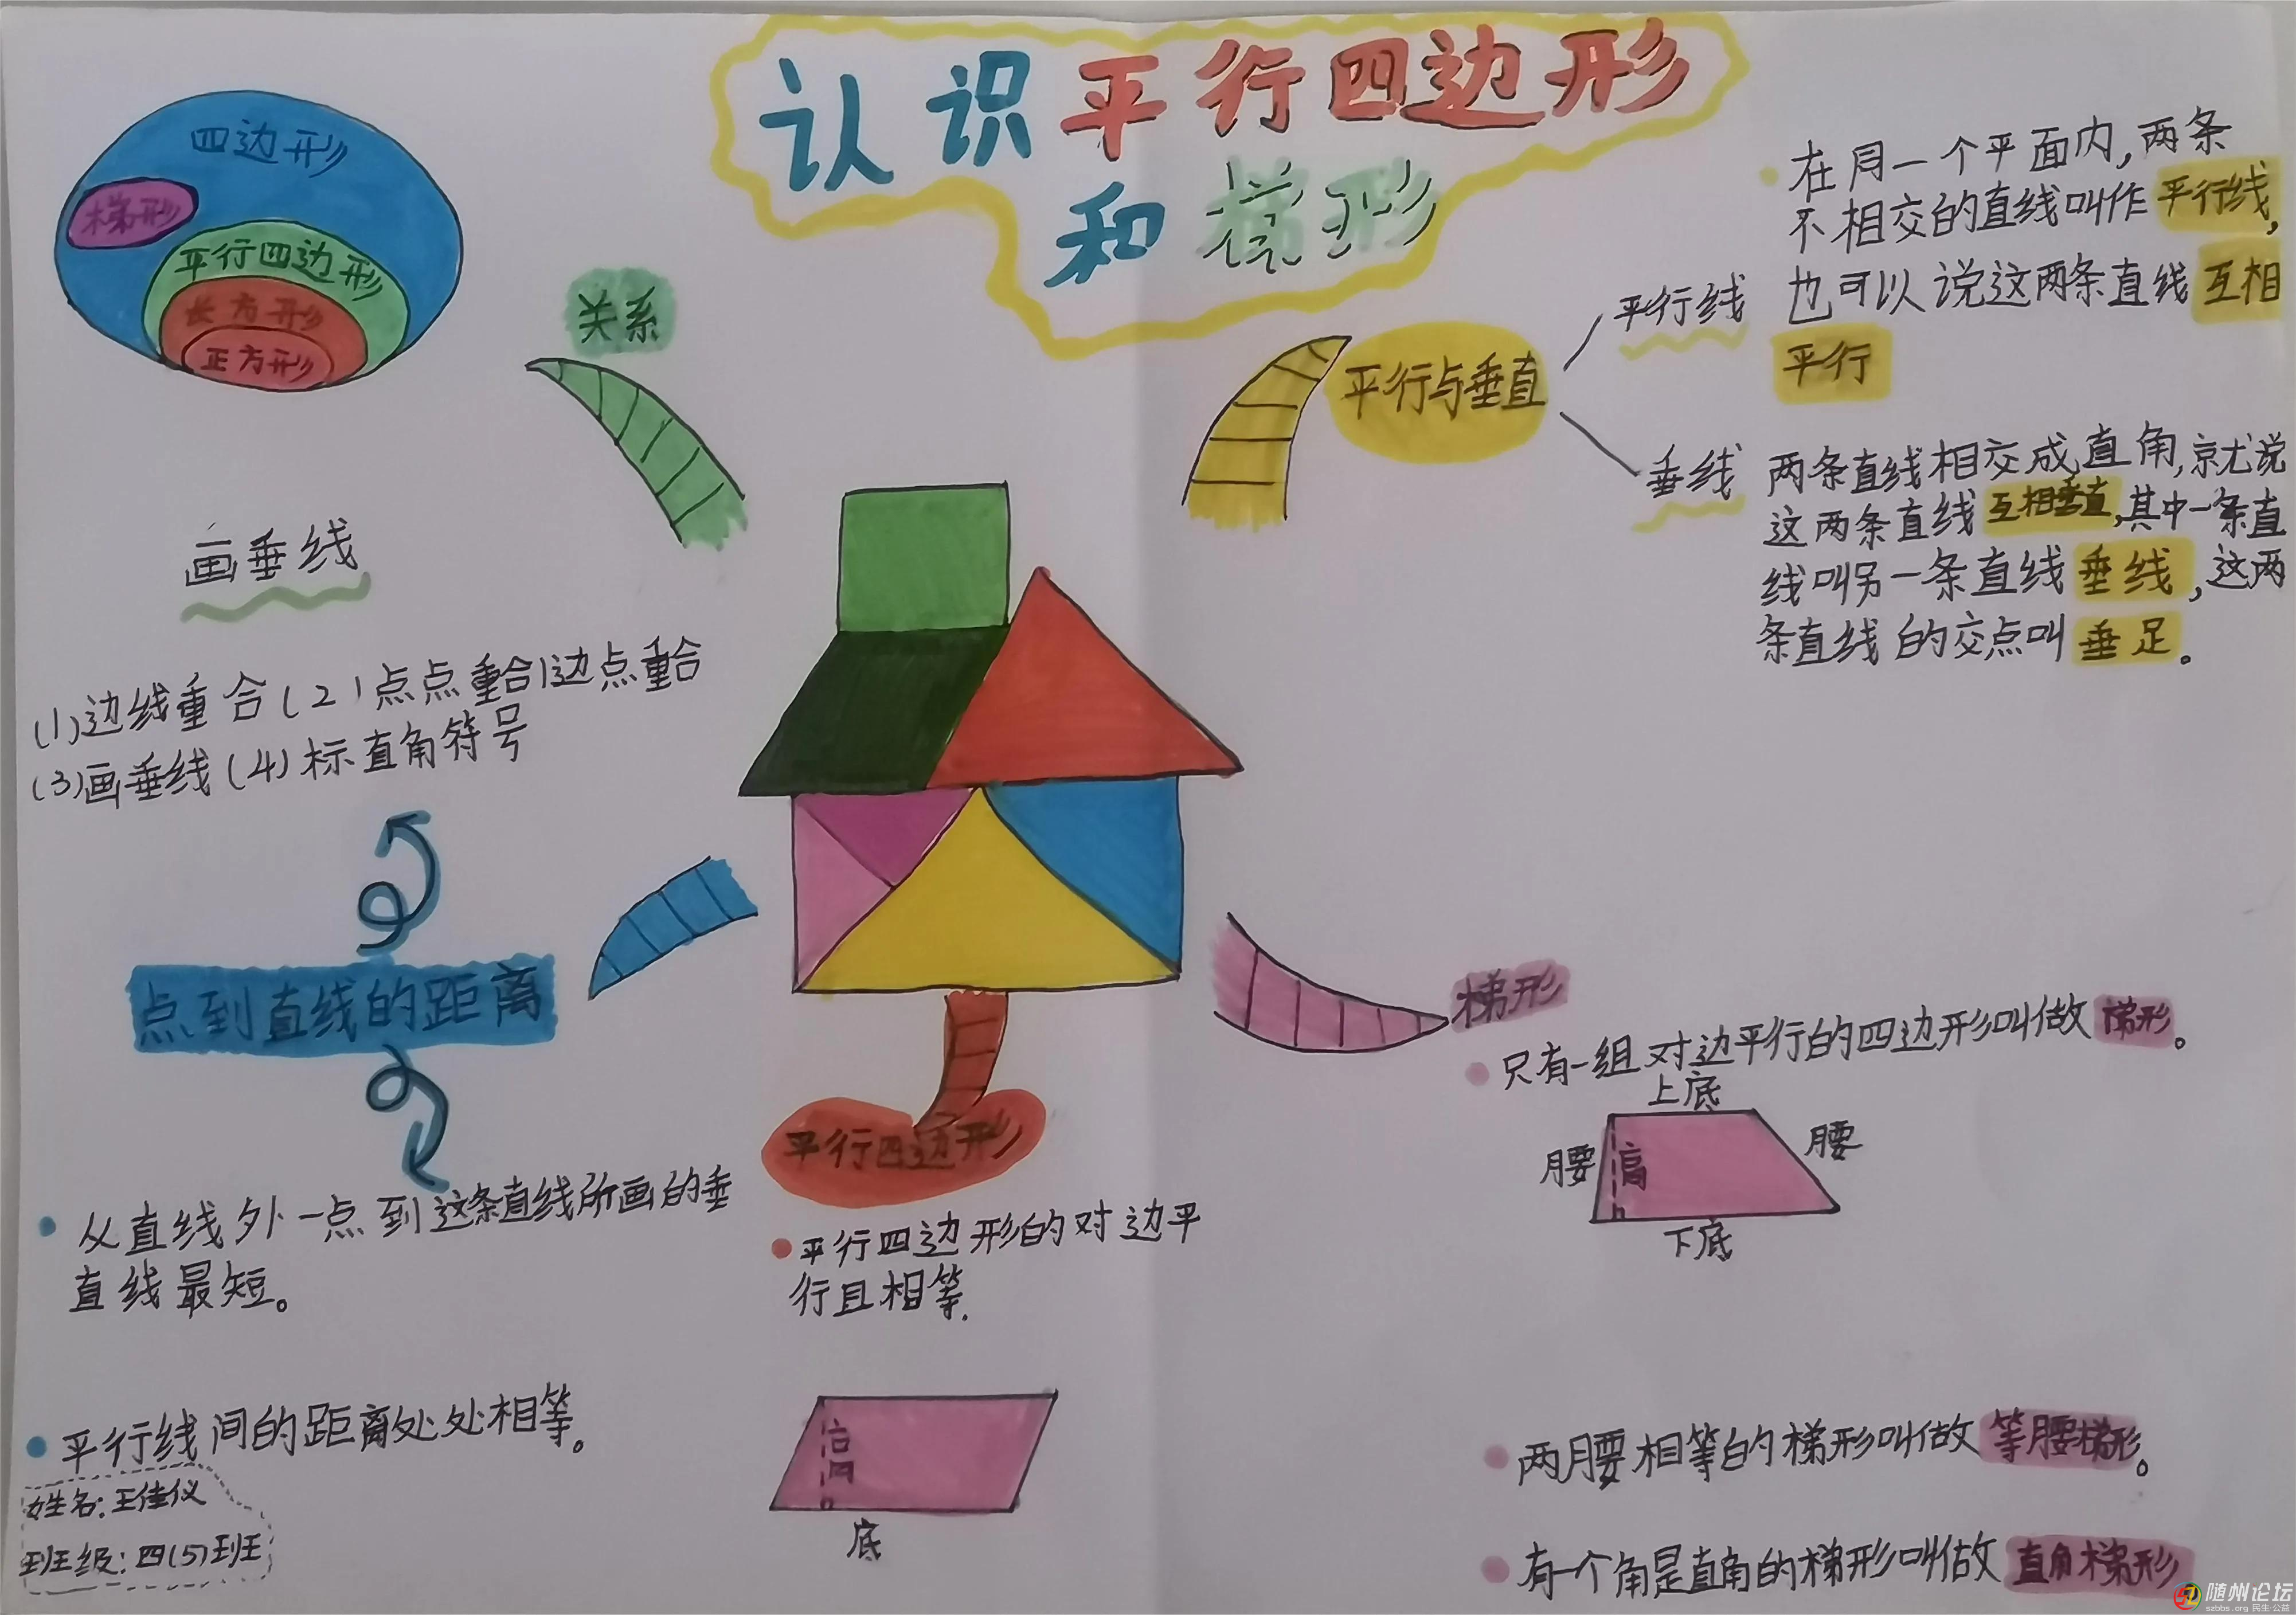 认识平行四边形
和梯形
四边形
梯形
平行四边形
长方形
正方形
关系
平行与垂直
平行线
在同一个平面内,两条
不相交的直线叫作平行线,
也可以说这两条直线互相
平行
垂线
两条直线相交成直角,就说
这两条直线互相垂直,其中一条直
线叫另一条直线垂线,这两
条直线的交点叫垂足。
画垂线
(1)边线重合(2)点点重合|边点重合
(3)画垂线(4)标直角符号
点到直线的距离
从直线外一点到这条直线所画的垂
直线最短。
平行线间的距离处处相等。
姓名:王佳仪
班级:四(5)班
平行四边形
平行四边形的对边平
行且相等.
高
底
梯形
只有一组对边平行的四边形叫做梯形。
上底
腰
高
腰
下底
两腰相等的梯形叫做等腰梯形。
有一个角是直角的梯形叫做直角梯形
随州论坛
szbbs.org 民生·公益